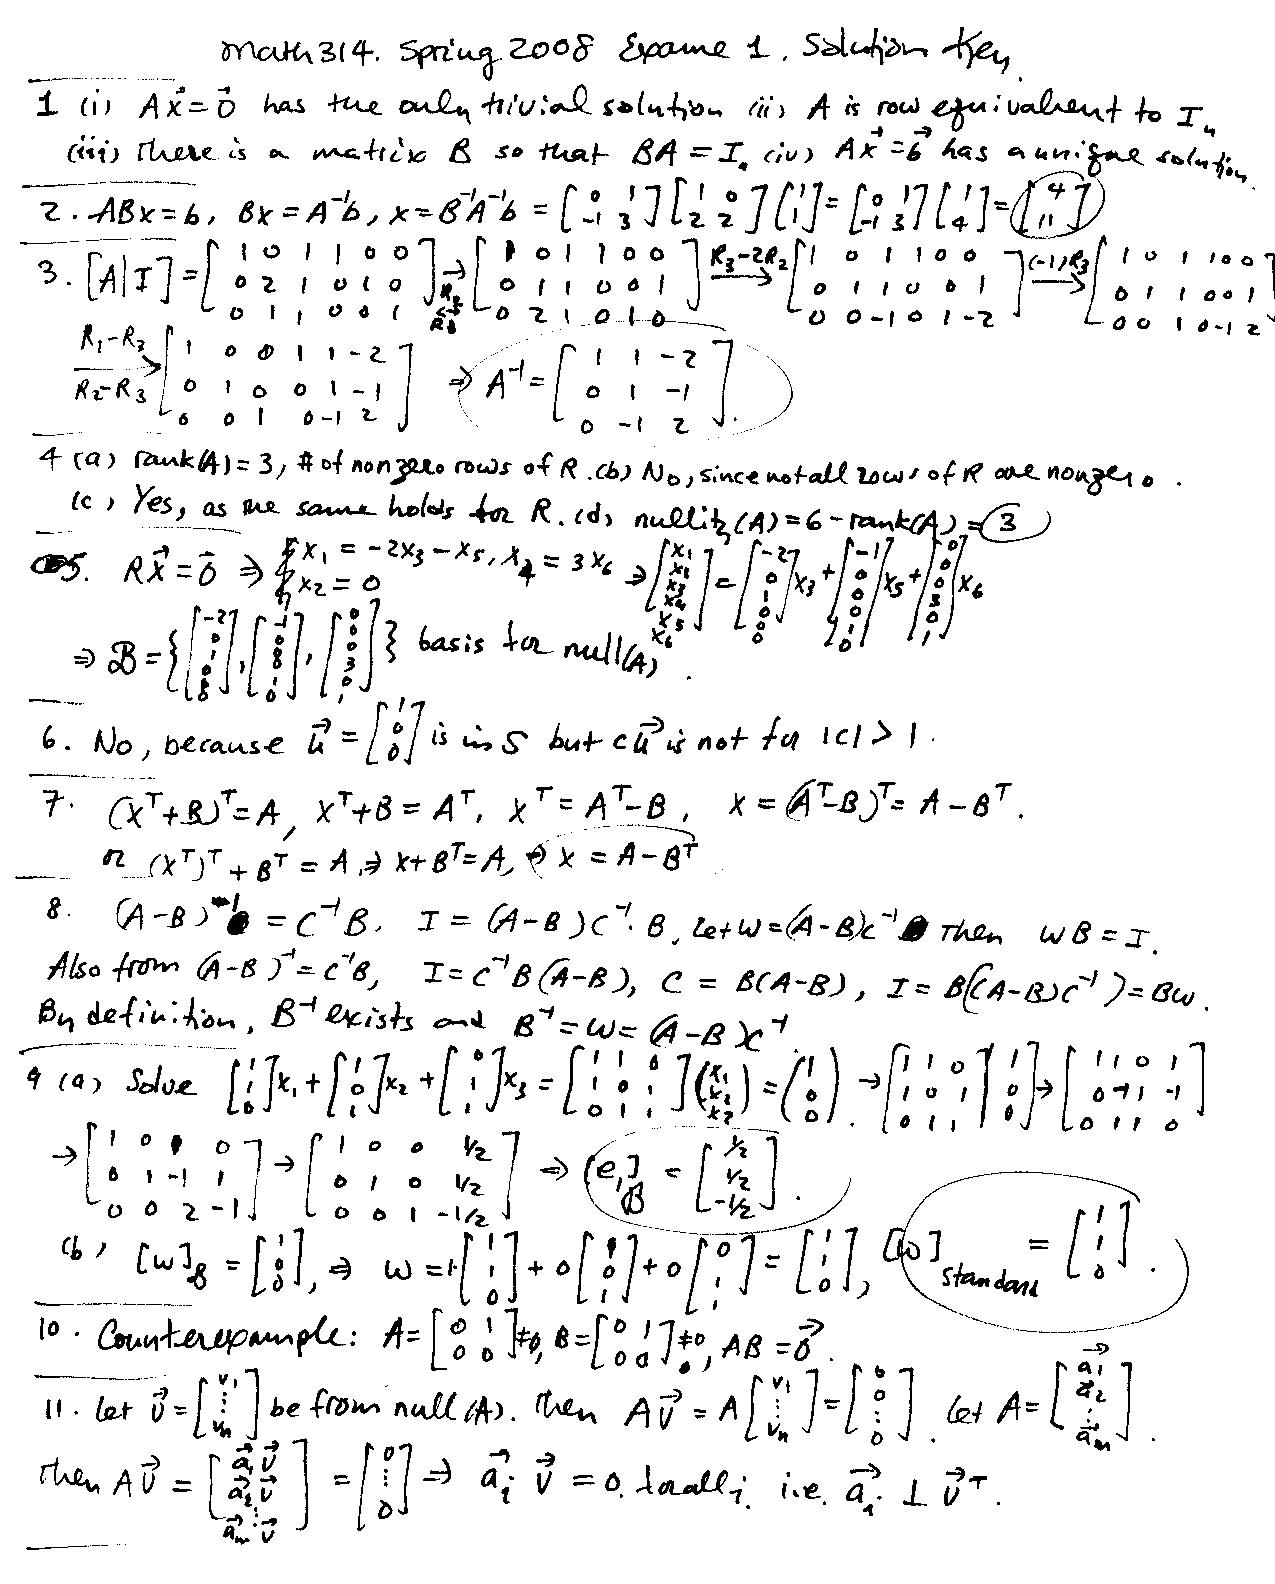 Math 314. Spring 2008 Exame 1. Solution Key
1 (i) Ax⃗ = 0⃗ has the only trivial solution (ii) A is row equivalent to Iₙ
(iii) There is a matrix B so that BA = Iₙ (iv) Ax⃗ = b⃗ has a unique solution.
2. ABx = b, Bx = A⁻¹b, x = B⁻¹A⁻¹b = [0 1; -1 3][1 0; 2 2][1; 1] = [0 1; -1 3][1; 4] = [4; 11]
3. [A|I] = [1 0 1 1 0 0; 0 2 1 0 1 0; 0 1 1 0 0 1] → R₂↔R₃ [1 0 1 1 0 0; 0 1 1 0 0 1; 0 2 1 0 1 0] R₃-2R₂ → [1 0 1 1 0 0; 0 1 1 0 0 1; 0 0 -1 0 1 -2] (-1)R₃ → [1 0 1 1 0 0; 0 1 1 0 0 1; 0 0 1 0 -1 2]
R₁-R₃ R₂-R₃ → [1 0 0 1 1 -2; 0 1 0 0 1 -1; 0 0 1 0 -1 2] ⇒ A⁻¹ = [1 1 -2; 0 1 -1; 0 -1 2].
4 (a) rank(A) = 3, # of nonzero rows of R. (b) No, since not all rows of R are nonzero.
(c) Yes, as the same holds for R. (d) nullity(A) = 6 - rank(A) = 3
5. Rx⃗ = 0⃗ ⇒ { x₁ = -2x₃ - x₅, x₄ = 3x₆ x₂ = 0 ⇒ [x₁; x₂; x₃; x₄; x₅; x₆] = [-2; 0; 1; 0; 0; 0]x₃ + [-1; 0; 0; 0; 1; 0]x₅ + [0; 0; 0; 3; 0; 1]x₆
⇒ B = {[-2; 0; 1; 0; 0; 0], [-1; 0; 0; 0; 1; 0], [0; 0; 0; 3; 0; 1]} basis for null(A).
6. No, because u⃗ = [1; 0; 0] is in S but cu⃗ is not for |c| > 1.
7. (Xᵀ+B)ᵀ = A, Xᵀ+B = Aᵀ, Xᵀ = Aᵀ-B, X = (Aᵀ-B)ᵀ = A - Bᵀ.
or (Xᵀ)ᵀ + Bᵀ = A, ⇒ X + Bᵀ = A, ⇒ X = A - Bᵀ
8. (A-B)⁻¹ = C⁻¹B, I = (A-B)C⁻¹·B, Let W = (A-B)C⁻¹ Then WB = I.
Also from (A-B)⁻¹ = C⁻¹B, I = C⁻¹B(A-B), C = B(A-B), I = B((A-B)C⁻¹) = BW.
By definition, B⁻¹ exists and B⁻¹ = W = (A-B)C⁻¹
9 (a) Solve [1; 1; 0]x₁ + [1; 0; 1]x₂ + [0; 1; 1]x₃ = [1 1 0; 1 0 1; 0 1 1](x₁; x₂; x₃) = (1; 0; 0). → [1 1 0 | 1; 1 0 1 | 0; 0 1 1 | 0] → [1 1 0 1; 0 -1 1 -1; 0 1 1 0]
→ [1 0 1 0; 0 1 -1 1; 0 0 2 -1] → [1 0 0 1/2; 0 1 0 1/2; 0 0 1 -1/2] ⇒ [e₁]_B = [1/2; 1/2; -1/2].
(b) [w]_B = [1; 0; 0], ⇒ w = 1[1; 1; 0] + 0[1; 0; 1] + 0[0; 1; 1] = [1; 1; 0], [w]standard = [1; 1; 0].
10. Counterexample: A = [0 1; 0 0] ≠ 0, B = [0 1; 0 0] ≠ 0, AB = 0⃗.
11. Let v⃗ = [v₁; ⋮; vₙ] be from null(A). Then Av⃗ = A[v₁; ⋮; vₙ] = [0; 0; ⋮; 0]. Let A = [a⃗₁; a⃗₂; ⋮; a⃗ₘ].
Then Av⃗ = [a⃗₁v⃗; a⃗₂v⃗; ⋮; a⃗ₘv⃗] = [0; ⋮; 0] ⇒ a⃗ᵢ v⃗ = 0. for all i. i.e. a⃗ᵢ ⊥ v⃗ᵀ.